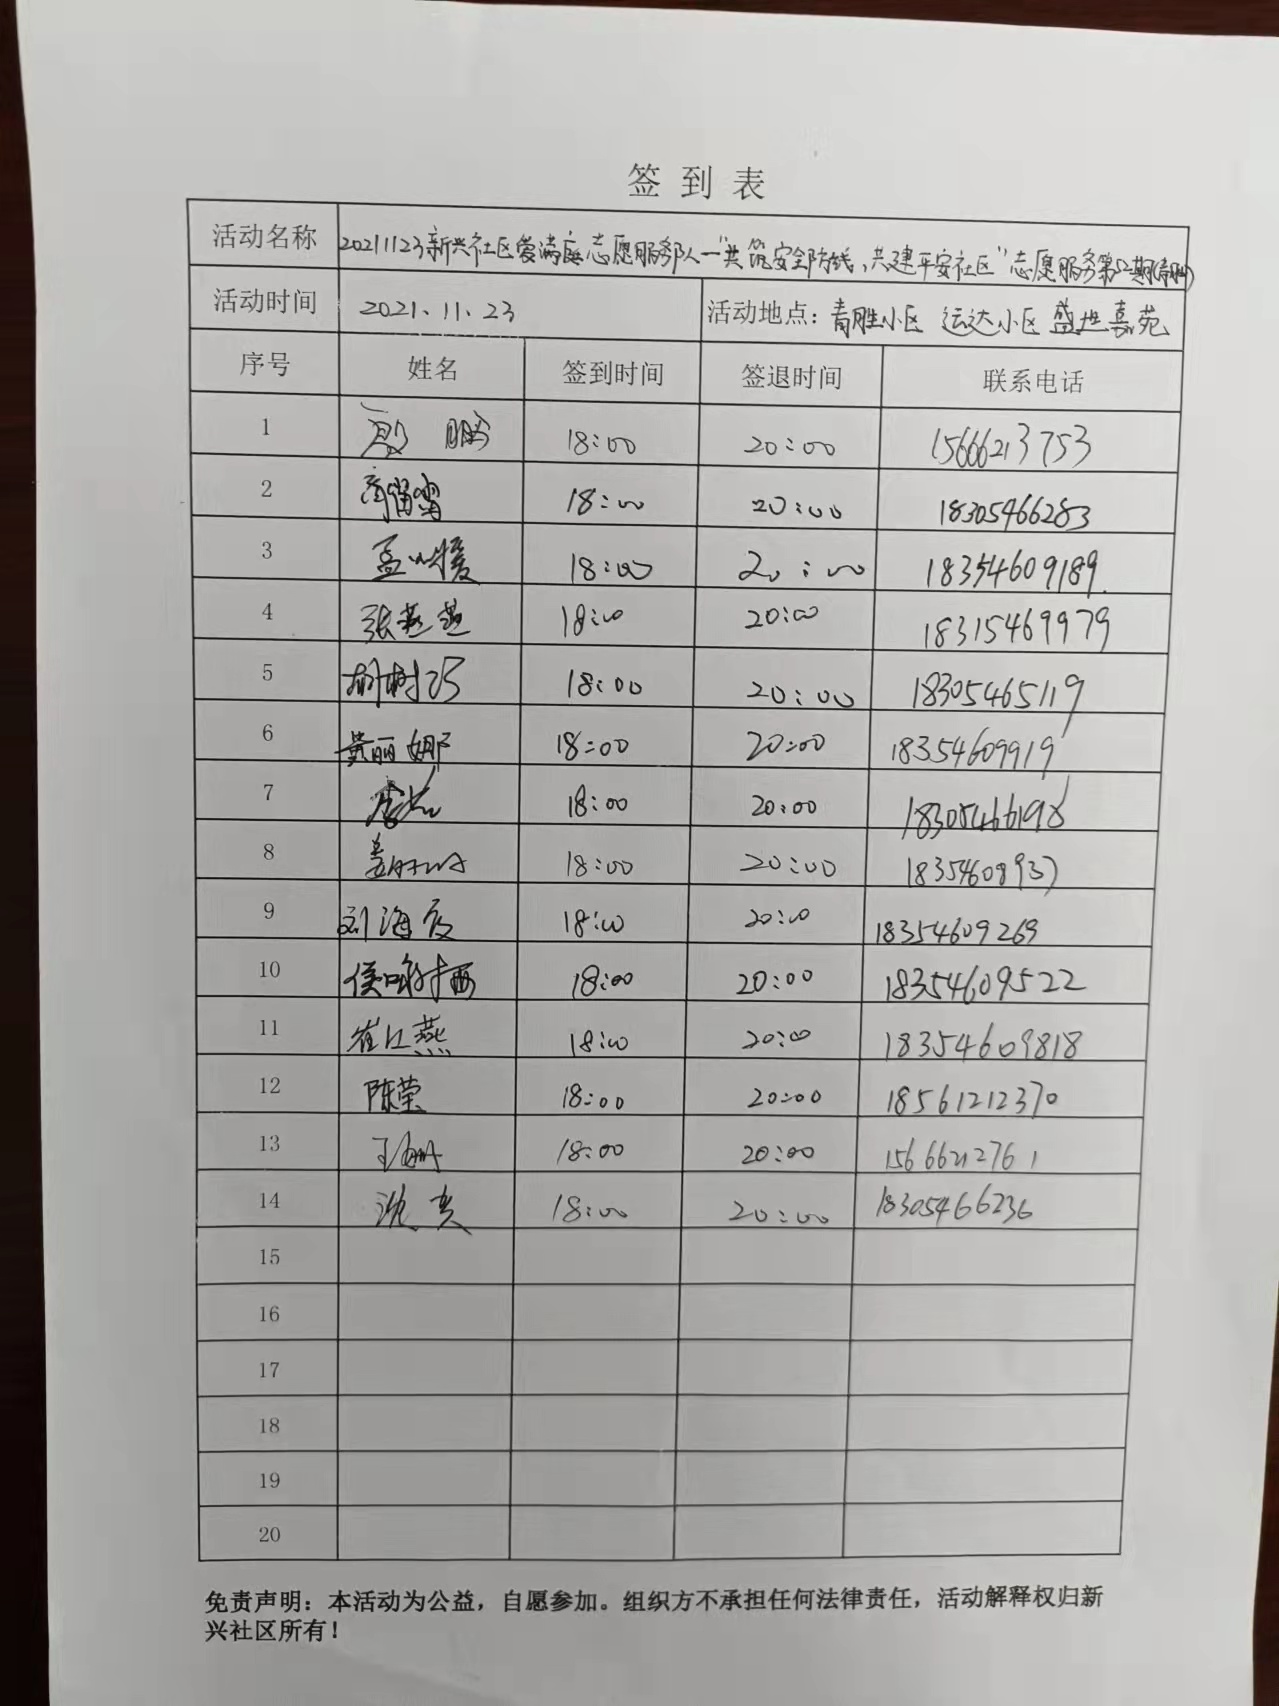 签到表
活动名称 20211123新兴社区爱满庭志愿服务队—"共筑安全防线、共建平安社区"志愿服务第52期(青胜)
活动时间 2021.11.23 活动地点：青胜小区 运达小区 盛世嘉苑
序号 姓名 签到时间 签退时间 联系电话
1 鹏 18:00 20:00 15666213753
2 18:00 20:00 18305466283
3 孟 18:00 20:00 18354609189
4 张燕燕 18:00 20:00 18315469979
5 树巧 18:00 20:00 18305465119
6 黄丽娜 18:00 20:00 18354609919
7 18:00 20:00 18305466198
8 姜 18:00 20:00 18354608937
9 刘海霞 18:00 20:00 18354609269
10 侯 18:00 20:00 18354609522
11 崔江燕 18:00 20:00 18354609818
12 陈莹 18:00 20:00 18561212370
13 王 18:00 20:00 15666212761
14 沈 18:00 20:00 18305466236
15
16
17
18
19
20
免责声明：本活动为公益，自愿参加。组织方不承担任何法律责任，活动解释权归新
兴社区所有！